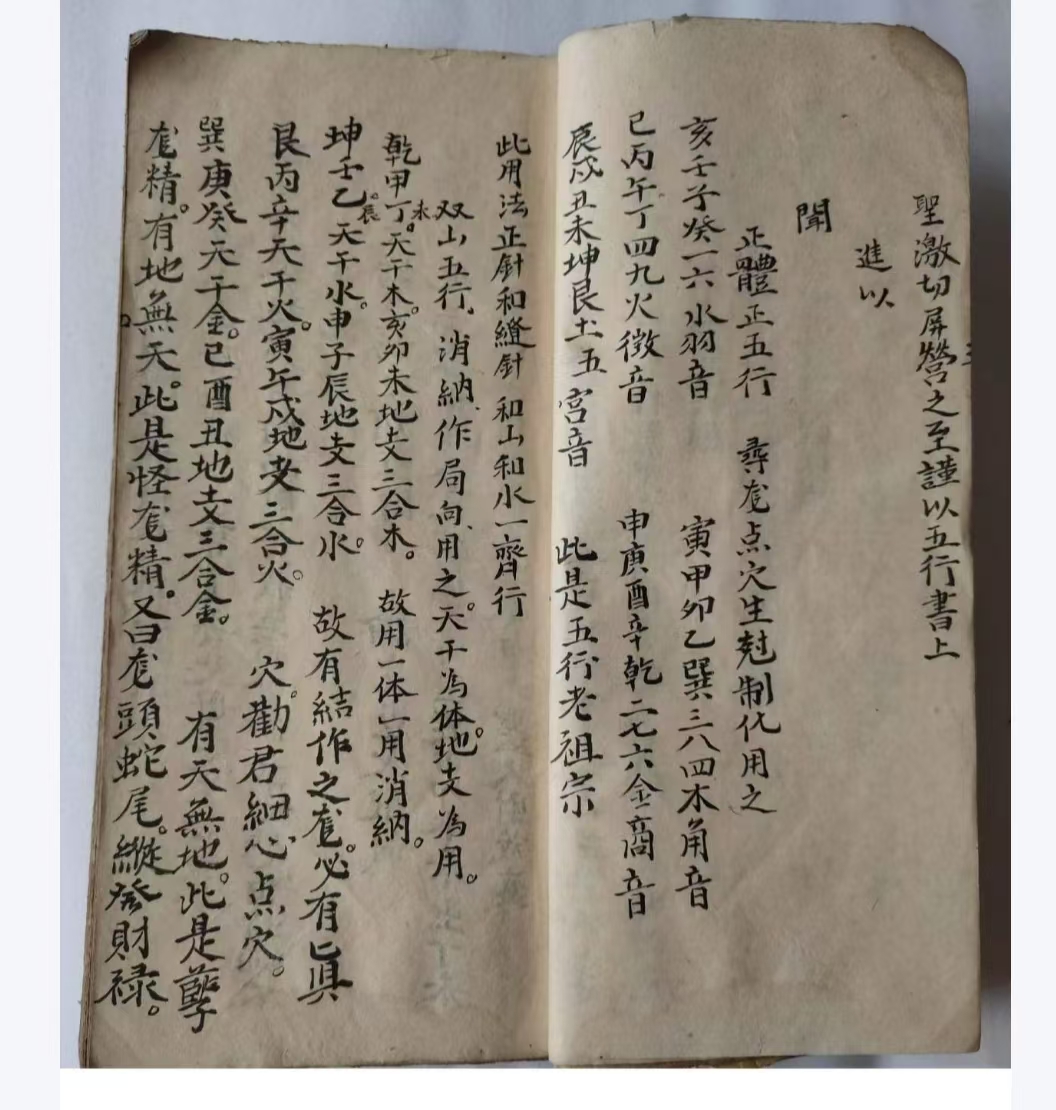 聖激切屏營之至謹以五行書上
進以
聞
正體正五行　尋龙点穴生尅制化用之
亥壬子癸一六水羽音　寅甲卯乙巽三八四木角音
巳丙午丁四九火徴音　申庚酉辛乾二七六金商音
辰戍丑未坤艮土五宫音　此是五行老祖宗
此用法正針和縫針　和山和水一齊行
双山五行。消納作局向用之。天干為体。地支為用。
乾甲丁未。天干木。亥卯未地支三合木。　故用一体一用消納。
坤壬乙辰。天干水。申子辰地支三合水。　故有結作之龙。必有真
艮丙辛天干火。寅午戍地支三合火。　穴。勸君細心点穴。
巽庚癸天干金。巳酉丑地支三合金。　有天無地。此是孽
龙精。有地無天。此是怪龙精。又曰龙頭蛇尾。縱發財禄。